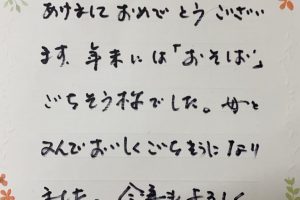 あけまして おめでとう ござい
ます。年末には「おそば」
ごちそう様でした。母と
みんでおいしくごちそうになり
ました。今年もよろしく